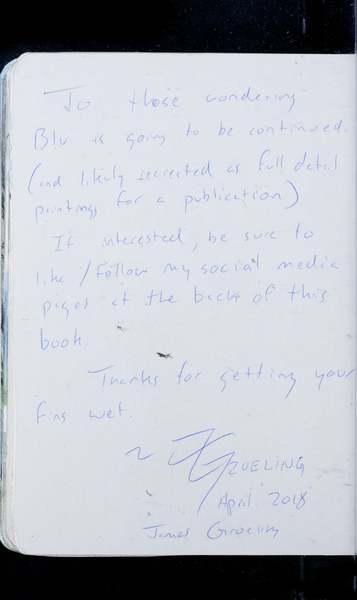 To those wondering
Blu is going to be continued.
(and likely recreated as full detail
paintings for a publication)
If interested, be sure to
like / Follow my social media
pages at the back of this
book.
Thanks for getting your
fins wet.
~ JGRUELING
April 2018
James